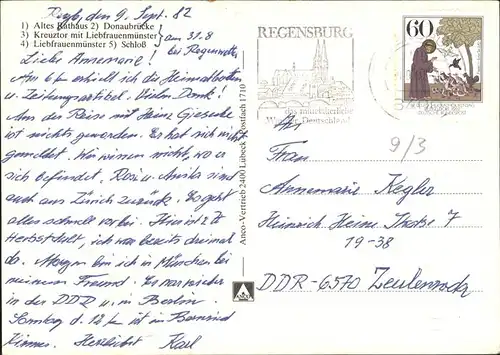 Rgbg, den 9. Sept. 82
1) Altes Rathaus 2) Donaubrücke
3) Kreuztor mit Liebfrauenmünster
4) Liebfrauenmünster 5) Schloß
am 31.8
bei Regenwetter
Liebe Annemarie!
Am 6/9 erhielt ich die Heimatboten
u. Zeitungsartikel. Vielen Dank!
Aus der Reise mit Heinz Giesecke
ist nichts geworden. Es hat sich nicht
gemeldet. Wir wissen nicht, wo u
sich befindet. Rosi u. Anika sind
auch aus Zürich zurück. Es geht
alles schnell vorbei. Hier ist z Zt
Herbstdult, ich war bereits dreimal
da. Morgen bin ich in München bei
meinem Freund. Er war wieder
in der DDR u. in Berlin.
Sonntag d. 12/9 ist in Bernried
Kirmes. Herzlichst Karl
Anco-Vertrieb 2400 Lübeck Postfach 1710
ANCO
REGENSBURG
das mittelalterliche
Wunder Deutschlands
60
9/3
An
Frau
Annemarie Kegler
Heinrich Heine Straße 7
19-38
DDR-6570 Zeulenroda